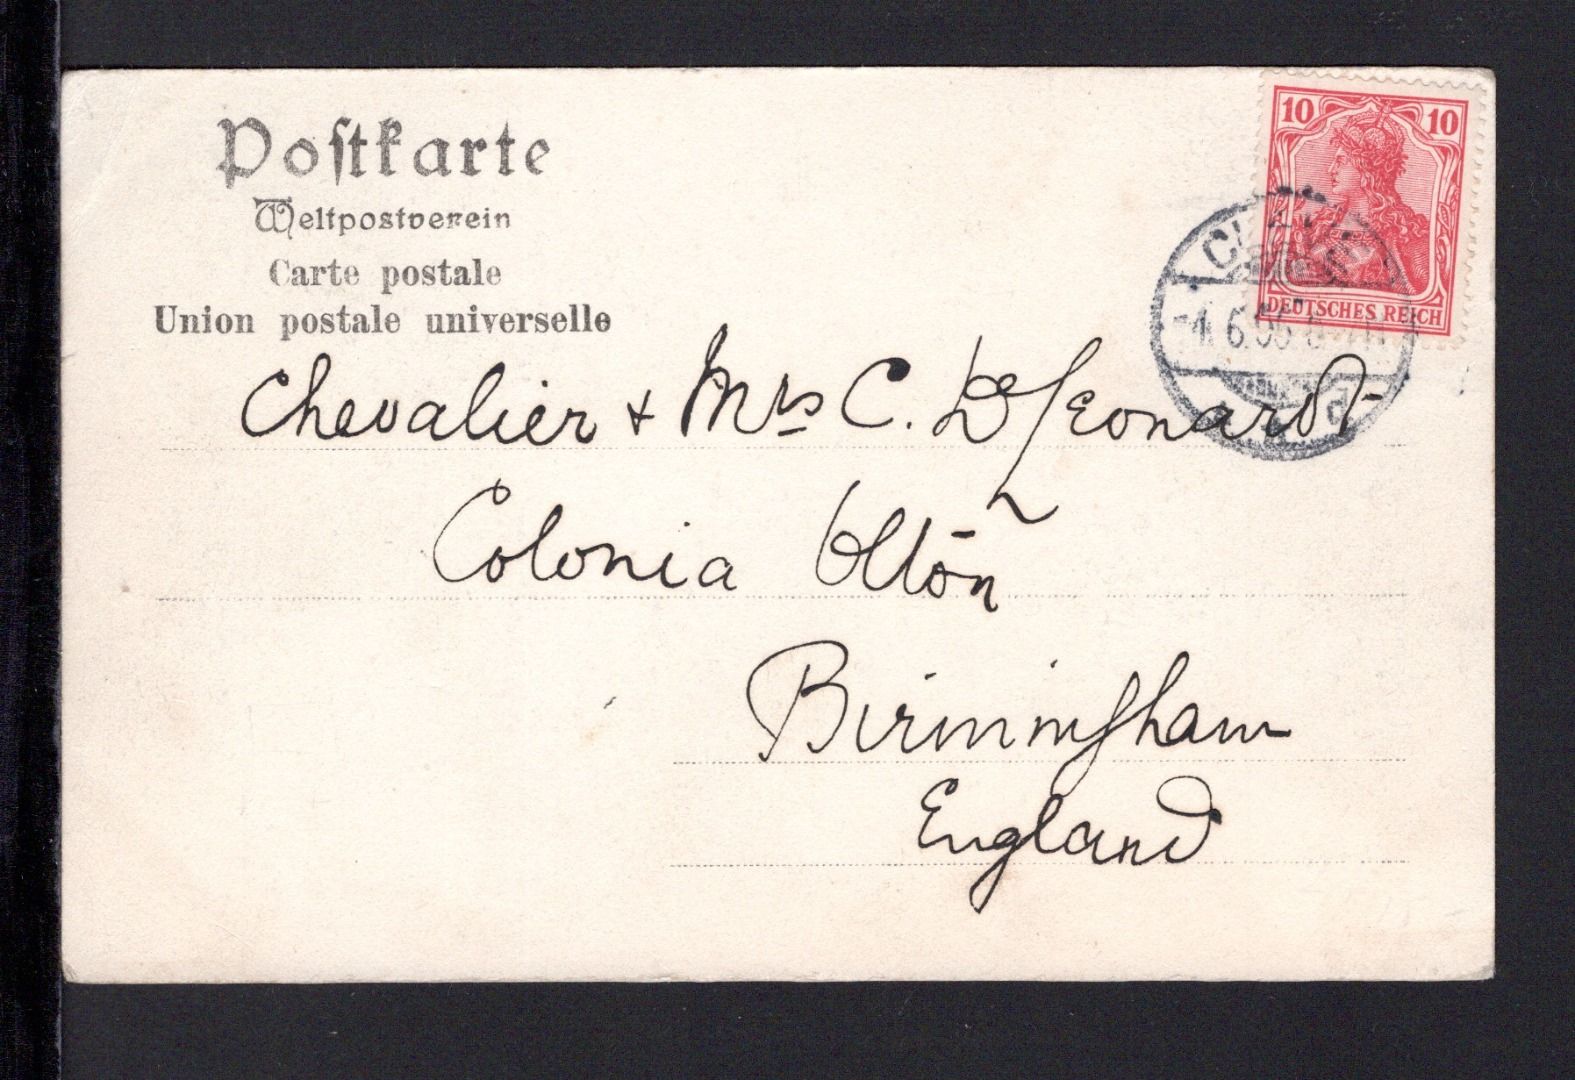 Postkarte
Weltpostverein
Carte postale
Union postale universelle
10 10
DEUTSCHES REICH
Chevalier + Mrs C. De Leonardt
Colonia Oltōn
Birmingham
England